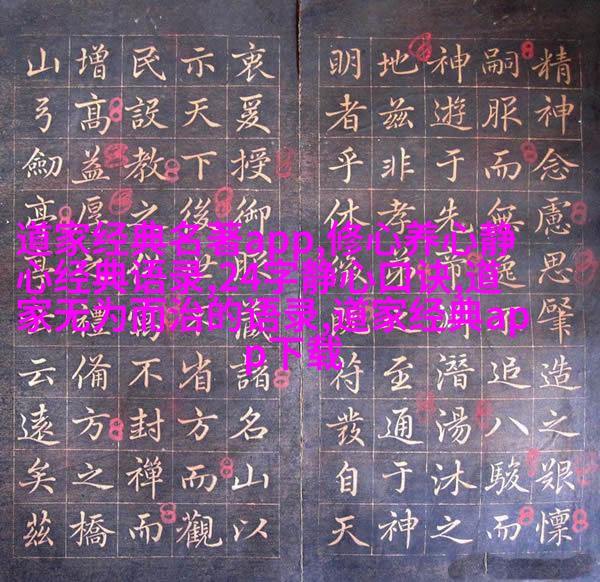 道家经典名著app,修心养心静
心经典语录,24字静心口诀,道
家无为而治的语录,道家经典ap
p下载
精神念慮思肇造之艱懍
嗣服而無逸追八駿而
神遊于先帝潛湯沐之
地茲非孝弟至通于神
明者乎休符發自天
衷爰授御服藏諸名山以
示天下後世省方而觀
民設教之不封禪而
增高益厚之禮備方之橋
山弓劒云遠矣茲